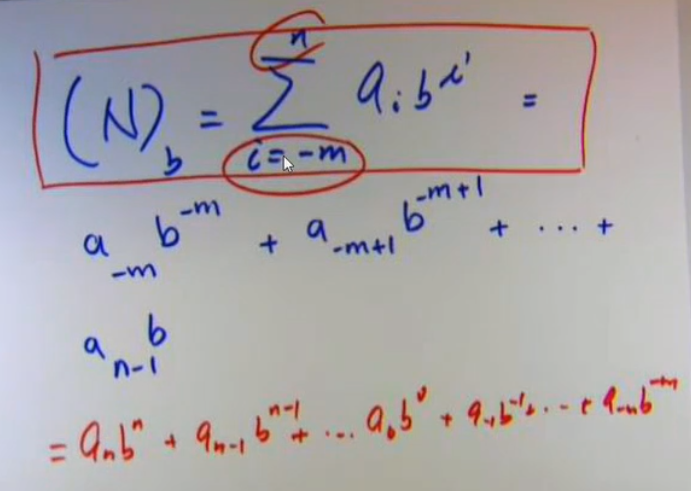 (N)_b = \sum_{i=-m}^{n} a_i b^i =
a_{-m} b^{-m} + a_{-m+1} b^{-m+1} + ... +
a_{n-1} b
= a_n b^n + a_{n-1} b^{n-1} + ... a_0 b^0 + a_{-1} b^{-1} + ... + a_{-m} b^{-m}